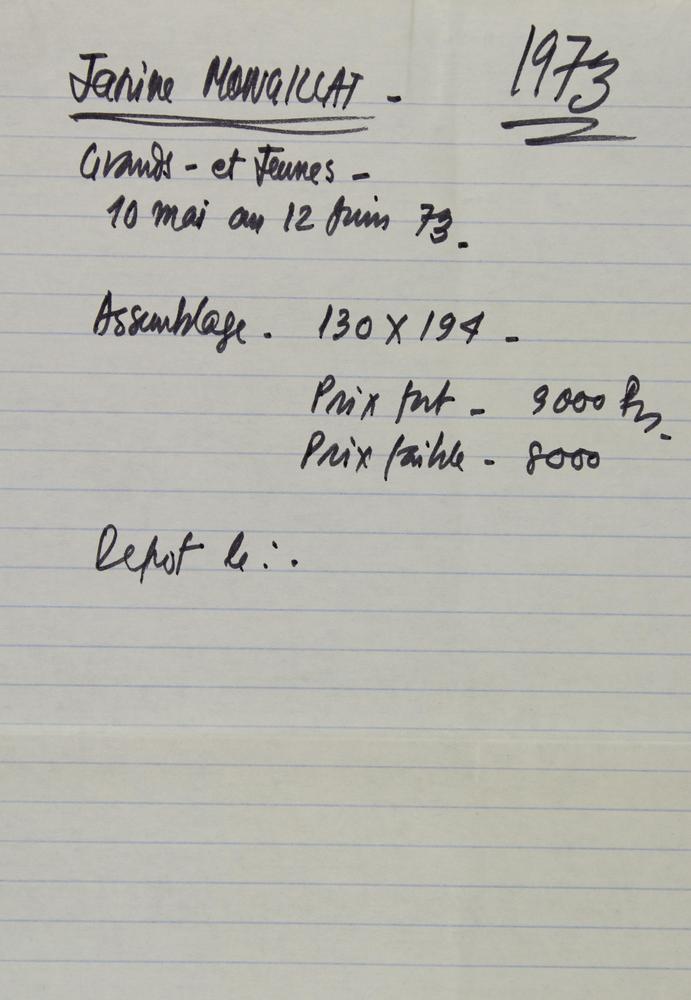 Janine MONGILLAT - 1973
Grands - et Jeunes -
10 mai au 12 Juin 73.
Assemblage. 130 X 194 -
Prix fort - 9000 Frs.
Prix faible - 8000
Depot le :.